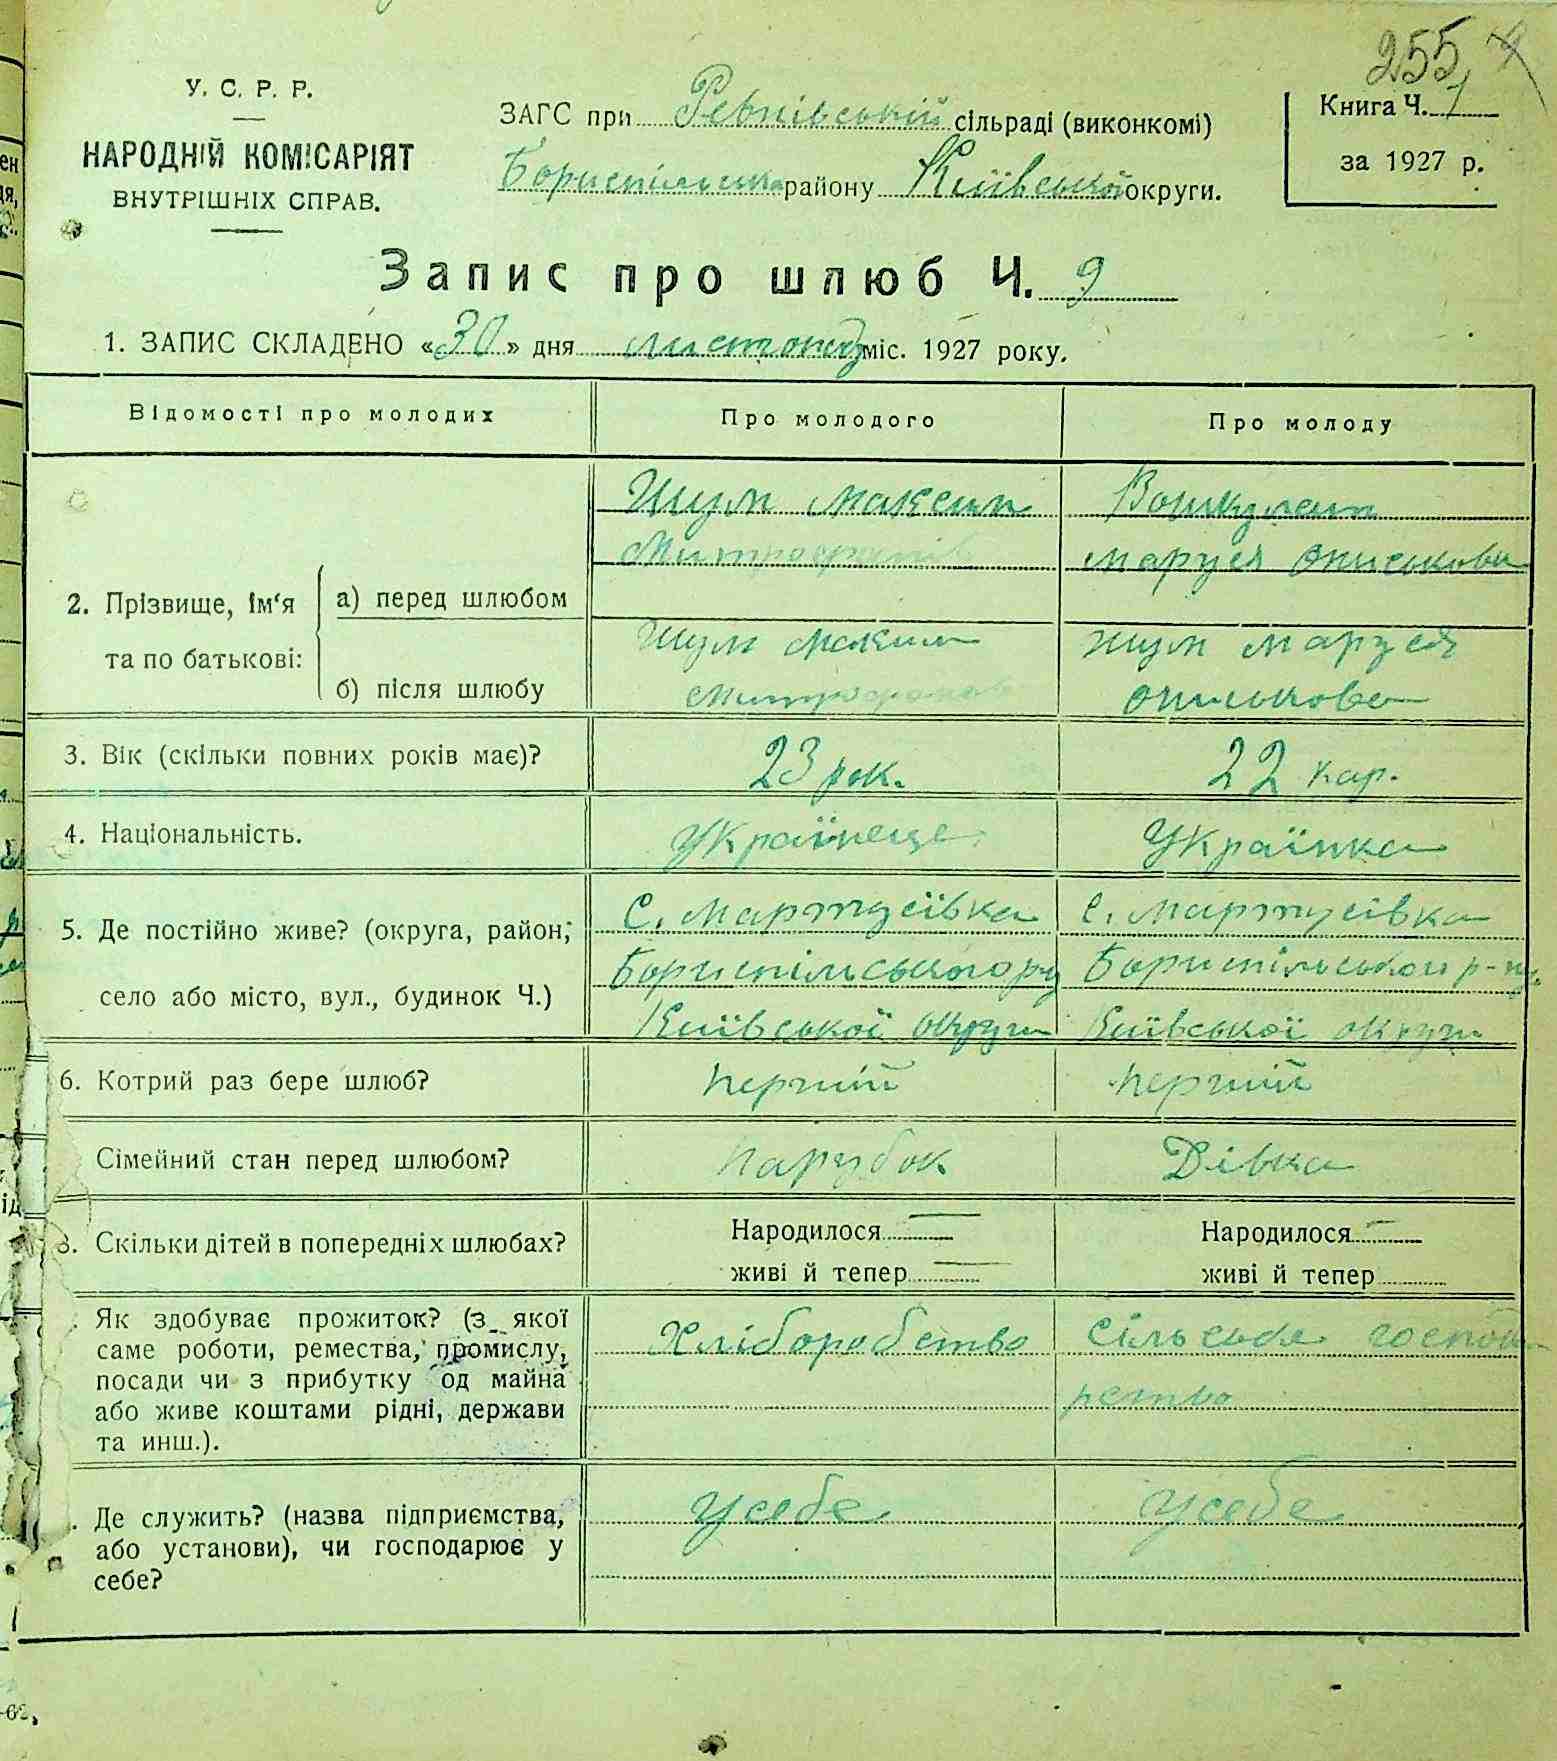 255
У. С. Р. Р.
НАРОДНІЙ КОМІСАРІЯТ
ВНУТРІШНІХ СПРАВ.
ЗАГС при Ревнівській сільраді (виконкомі)
Бориспільська району Київської округи.
Книга Ч. 1
за 1927 р.
Запис про шлюб Ч. 9
1. ЗАПИС СКЛАДЕНО «30» дня листопад міс. 1927 року.
Відомості про молодих
Про молодого
Про молоду
2. Прізвище, ім'я та по батькові:
а) перед шлюбом
Шум Максим
Митрофанів
Маруся Ониськова
б) після шлюбу
Шум Максим
Митрофанов
Шум Маруся
Ониськова
3. Вік (скільки повних років має)?
23 рок.
22
4. Національність.
Українець
Українка
5. Де постійно живе? (округа, район,
село або місто, вул., будинок Ч.)
С. Мартусівка
Бориспільського ру
Київської округи
С. Мартусівка
Бориспільського р-ну
Київської округи
6. Котрий раз бере шлюб?
перший
перший
Сімейний стан перед шлюбом?
Парубок
Дівка
8. Скільки дітей в попередніх шлюбах?
Народилося —
живі й тепер —
Народилося —
живі й тепер
Як здобуває прожиток? (з якої
саме роботи, ремества, промислу,
посади чи з прибутку од майна
або живе коштами рідні, держави
та инш.).
Хліборобство
Сільське господа
рство
Де служить? (назва підприємства,
або установи), чи господарює у
себе?
у себе
у себе